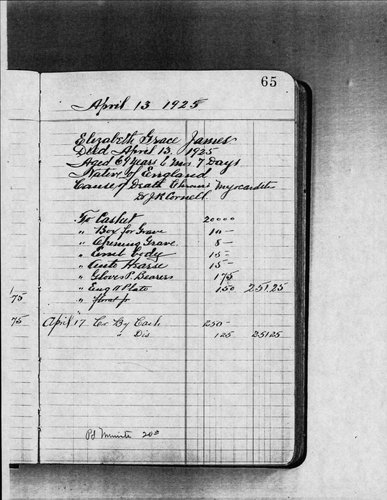 65
April 13 1925
Elizabeth Grace James
Died April 13, 1925
Aged 69 Years 6 mos 7 Days
Native of England
Cause of Death Chronic Myocarditis
Dr J. R. Cornell
To Casket 200 00
" Box for Grave 10 —
" Opening Grave 8 —
" Emb body 15 —
" Auto Hearse 15 —
" Gloves P. Bearers 1 75
" Eng N Plate 1 50 251.25
"
1/75
75 April 17 Cr By Cash 250 —
" Dis 1 25 251 25
Pd 200